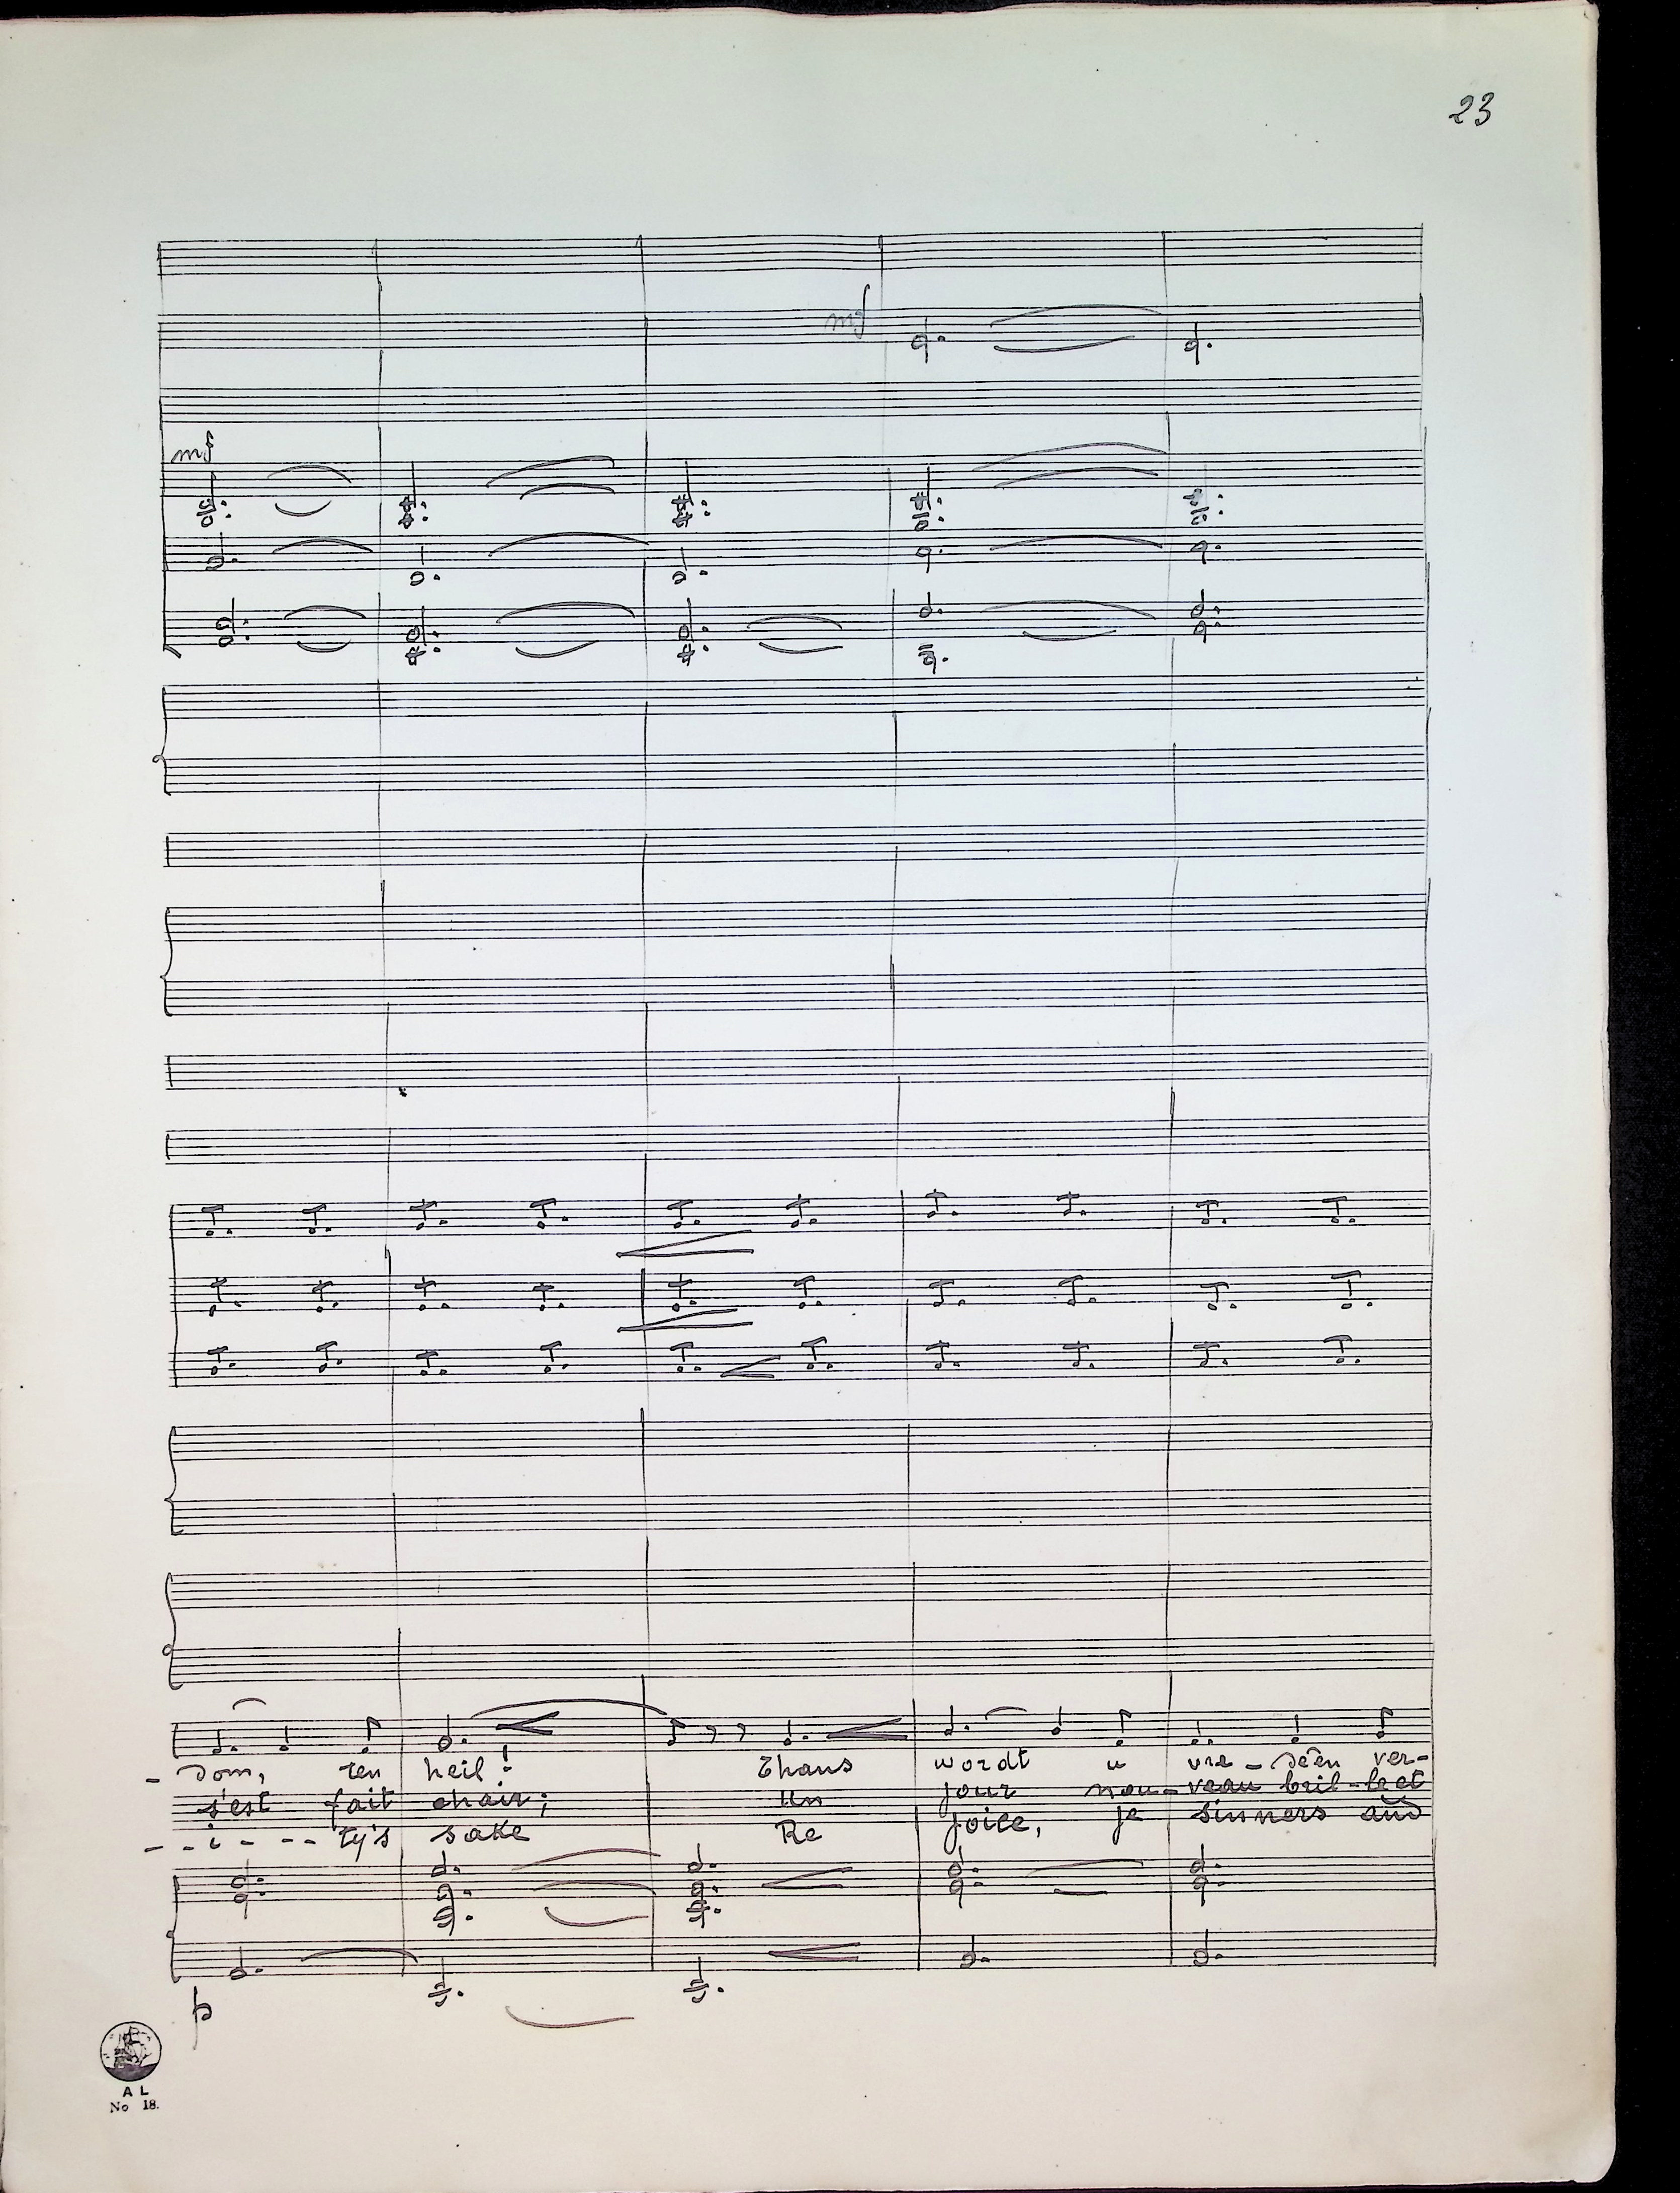 23
mf
mf
- dom, ten heil! Thans wordt u vre - deên ver-
s'est fait chair; Un jour nou - veau bril - le et
- - i - - - ty's sake Re joice, je sinners and
p
A L
No 18.